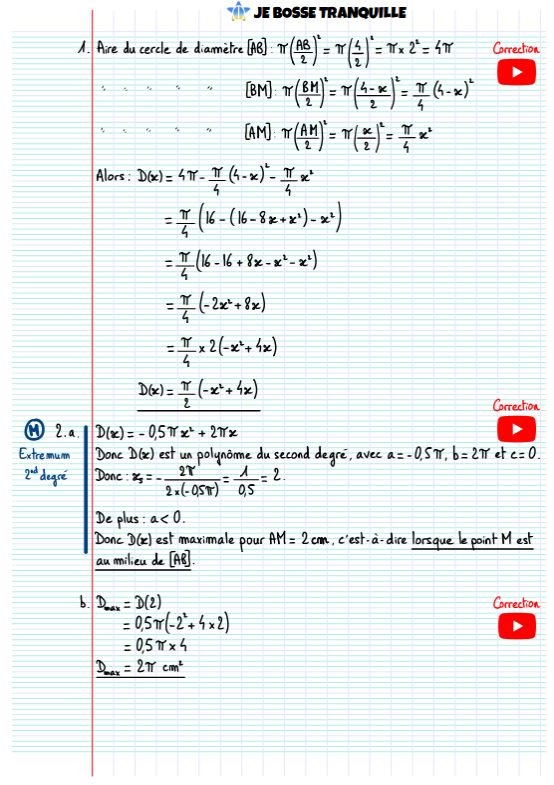 JE BOSSE TRANQUILLE
1. Aire du cercle de diamètre [AB] : π(AB/2)² = π(4/2)² = π × 2² = 4π
Correction
" " " " " [BM] : π(BM/2)² = π((4-x)/2)² = π/4 (4-x)²
" " " " " [AM] : π(AM/2)² = π(x/2)² = π/4 x²
Alors : D(x) = 4π - π/4 (4-x)² - π/4 x²
= π/4 (16 - (16 - 8x + x²) - x²)
= π/4 (16 - 16 + 8x - x² - x²)
= π/4 (-2x² + 8x)
= π/4 × 2(-x² + 4x)
D(x) = π/2 (-x² + 4x)
Correction
M 2.a. D(x) = -0,5πx² + 2πx
Extremum
2nd degré
Donc D(x) est un polynôme du second degré, avec a = -0,5π, b = 2π et c = 0.
Donc : xₛ = - 2π/(2×(-0,5π)) = 1/0,5 = 2.
De plus : a < 0.
Donc D(x) est maximale pour AM = 2cm, c'est-à-dire lorsque le point M est
au milieu de [AB].
b. Dmax = D(2)
Correction
= 0,5π(-2² + 4×2)
= 0,5π × 4
Dmax = 2π cm²